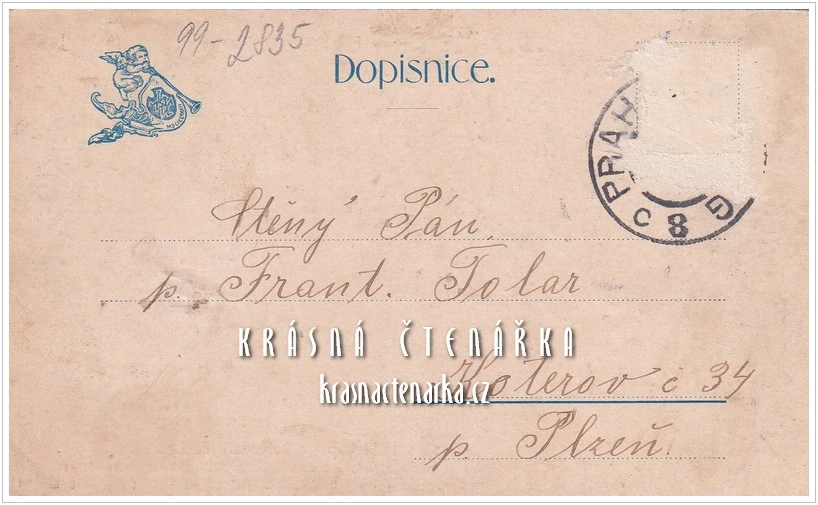 99-2835
Dopisnice.
PRAH
C 8 G
Ctěný Pán
p. Frant. Tolar
KRÁSNÁ ČTENÁŘKA
Koterov č 34
krasnactenarka.cz
p. Plzeň.